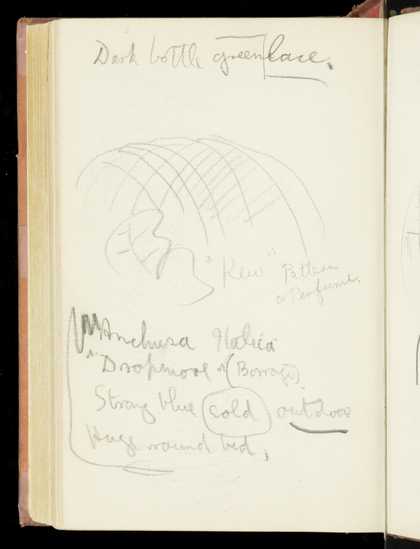 Dark bottle green lace.
"Kew" Pattern
& Perfume.
Anchusa Italica
"Dropmore" (Borrage).
Strong blue cold outdoor
Huge round bed,